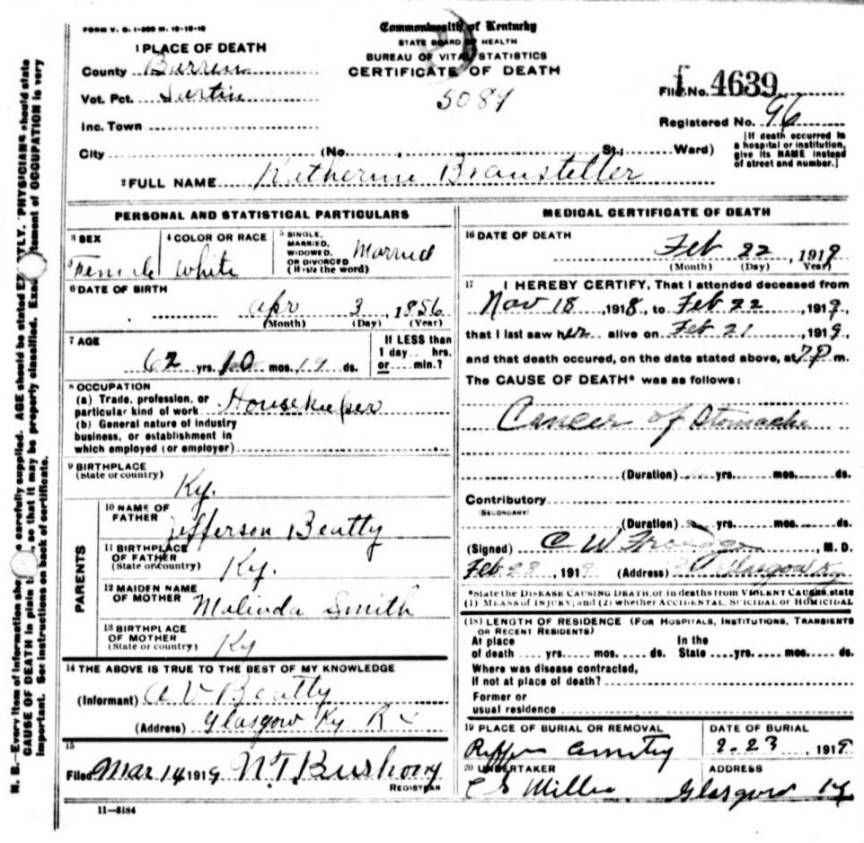 FORM V. S. 1-200 M. 10-10-16
Commonwealth of Kentucky
STATE BOARD OF HEALTH
BUREAU OF VITAL STATISTICS
CERTIFICATE OF DEATH
5087
1 PLACE OF DEATH
County Barren
Vot. Pct.
Inc. Town
City (No. , St.; Ward)
File No. 4639
Registered No. 96
[If death occurred in a hospital or institution, give its NAME instead of street and number.]
2 FULL NAME Katherine Bransteller
PERSONAL AND STATISTICAL PARTICULARS
3 SEX
Female
4 COLOR OR RACE
White
5 SINGLE, MARRIED, WIDOWED, OR DIVORCED (Write the word)
Married
6 DATE OF BIRTH
Apr 3, 1856
(Month) (Day) (Year)
7 AGE
62 yrs. 10 mos. 19 ds.
If LESS than 1 day hrs. or min.?
8 OCCUPATION
(a) Trade, profession, or
particular kind of work Housekeeper
(b) General nature of industry
business, or establishment in
which employed (or employer)
9 BIRTHPLACE
(State or country)
Ky.
PARENTS
10 NAME OF FATHER
Jefferson Beatty
11 BIRTHPLACE OF FATHER
(State or country)
Ky.
12 MAIDEN NAME OF MOTHER
Malinda Smith
13 BIRTHPLACE OF MOTHER
(State or country)
Ky
14 THE ABOVE IS TRUE TO THE BEST OF MY KNOWLEDGE
(Informant) A V Beatty
(Address) Glasgow Ky
15
Filed Mar 14 1919
REGISTRAR
11-3184
MEDICAL CERTIFICATE OF DEATH
16 DATE OF DEATH
Feb 22, 1919
(Month) (Day) Year)
17 I HEREBY CERTIFY, That I attended deceased from
Nov 18, 1918, to Feb 22, 1919,
that I last saw her alive on Feb 21, 1919,
and that death occured, on the date stated above, at 7 P m.
The CAUSE OF DEATH* was as follows:
Cancer of Stomach
(Duration) yrs. mos. ds.
Contributory
(SECONDARY)
(Duration) yrs. mos. ds.
(Signed) C W , M. D.
Feb 23, 1919 (Address) Glasgow Ky
*State the DISEASE CAUSING DEATH, or, in deaths from VIOLENT CAUSES, state
(1) MEANS OF INJURY; and (2) whether ACCIDENTAL, SUICIDAL or HOMICIDAL
(18) LENGTH OF RESIDENCE (FOR HOSPITALS, INSTITUTIONS, TRANSIENTS
OR RECENT RESIDENTS)
At place of death yrs. mos. ds. In the State yrs. mos. ds.
Where was disease contracted,
If not at place of death?
Former or
usual residence
19 PLACE OF BURIAL OR REMOVAL
DATE OF BURIAL
2-23, 1919
20 UNDERTAKER
ADDRESS
Glasgow Ky
N. B.—Every item of information should be carefully supplied. AGE should be stated EXACTLY. PHYSICIANS should state
CAUSE OF DEATH in plain so that it may be properly classified. Exact statement of OCCUPATION is very
important. See instructions on back of certificate.